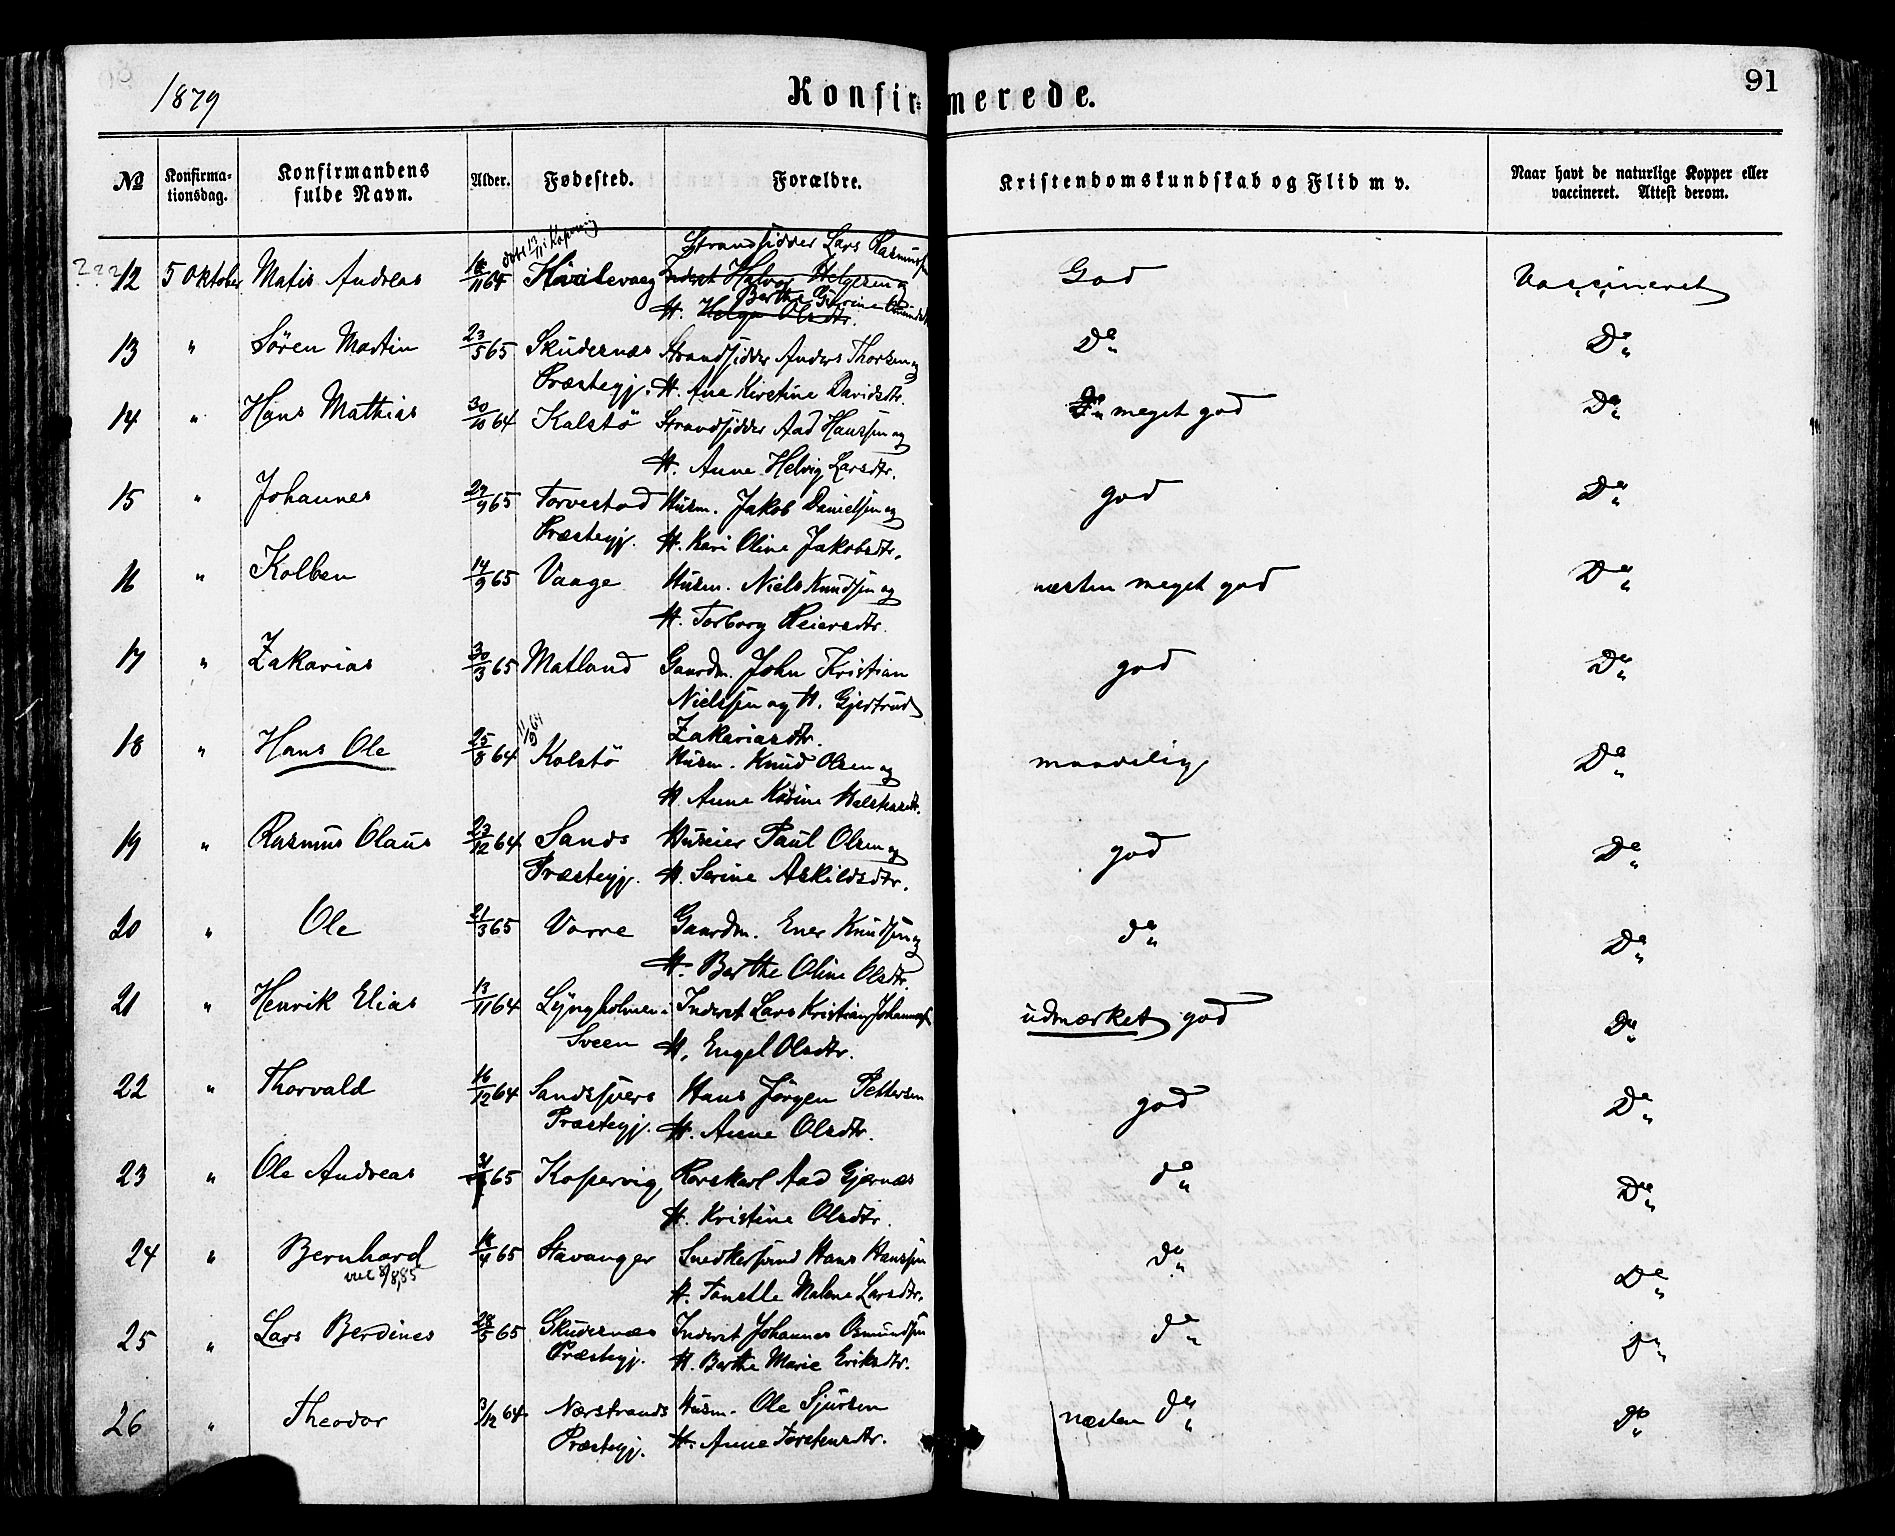 1879
Konfirmerede.
91
No
Konfirma-
tionsdag.
Konfirmandens
fulde Navn.
Alder.
Fødested.
Forældre.
Kristendomskundskab og Flid m v.
Naar havt de naturlige Kopper eller
vaccineret. Attest derom.
døbt 13/11 i Kopervig
Strandsidder Lars Rasmussen
? ? ? 12 5 Oktober Matis Andreas 18/11 64 Hävilevaag Inderst Halvor Helgesen og God Vaccineret
Berthe Gurine Omundsdtr
H. Helga Olsdtr.
13 " Sören Martin 23/5 65 Skudesnæs Strandsidder Anders Thorsen og Do Do
Præstegj. H. Ane Kirstine Davidsdtr.
14 " Hans Mathias 30/10 64 Kalstö Strandsidder Aad Hanssen og Do meget god Do
H. Anne Helvig Larsdtr.
15 " Johannes 29/9 65 Torvestad Husm. Jakob Danielsen og god Do
Præstegj. H. Kari Oline Jakobsdtr.
16 " Kolben 14/9 65 Vaage Husm. Niels Knudsen og næsten meget god Do
H. Torborg Reiersdtr.
17 " Zakarias 30/3 65 Matland Gaardm. John Kristian god Do
Nielssen og H. Gjertrud
Zakariasdtr.
18 " Hans Ole 25/8 64 11/9 64 Kolstö Husm. Knud Olsen og maadelig Do
H. Anne Karine
19 " Rasmus Olaus 23/12 64 Sands Huseier Paul Olsen og god Do
Præstegj. H. Serine Askildsdtr.
20 " Ole 21/3 65 Vorre Gaardm. Ener Knudsen og do Do
H. Berthe Oline Olsdtr.
21 " Henrik Elias 13/11 64 Lyngholmen i Inderst Lars Kristian Johannessen udmærket god Do
Sveen H. Engel Olsdtr.
22 " Thorvald 16/12 64 Sandsværs Hans Jörgen Pettersen god Do
Præstegj. H. Anne Olsdtr.
23 " Ole Andreas 65 Kopervig Aad Gjernæs do Do
H. Kristine Olsdtr.
24 " Bernhard 18/4 65 Stavanger Snedkersvend Hans Hanssen do Do
8/8,85 H. Tonette Malene Larsdtr.
25 " Lars Berdines 28/5 65 Skudesnæs Inderst Johannes Osmundsen do Do
Præstegj. H. Berthe Marie Eriksdtr.
26 " Theodor 3/12 64 Nærstrands Husm. Ole Sjursen næsten do do
Præstegj. H. Anne Torstensdtr.